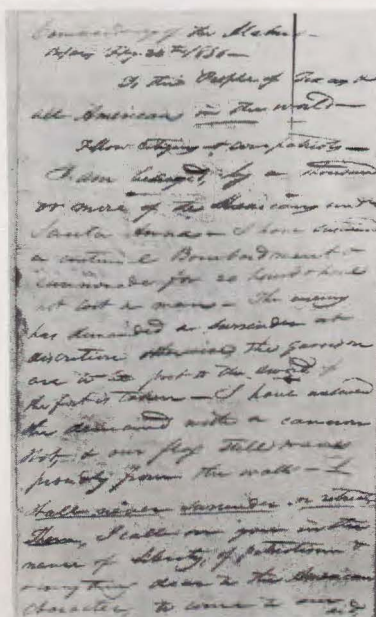 Commandancy of the Alamo—
Bejar, Feby. 24th 1836—
To the People of Texas &
all Americans in the world—
Fellow Citizens & compatriots—
I am besieged, by a thousand
or more of the Mexicans under
Santa Anna— I have sustained
a continual Bombardment &
cannonade for 24 hours & have
not lost a man— The enemy
has demanded a surrender at
discretion otherwise, the garrison
are to be put to the sword, if
the fort is taken— I have answered
the demand with a cannon
shot, & our flag still waves
proudly from the walls— I
shall never surrender or retreat
Then, I call on you in the
name of Liberty, of patriotism &
everything dear to the American
character, to come to our aid,